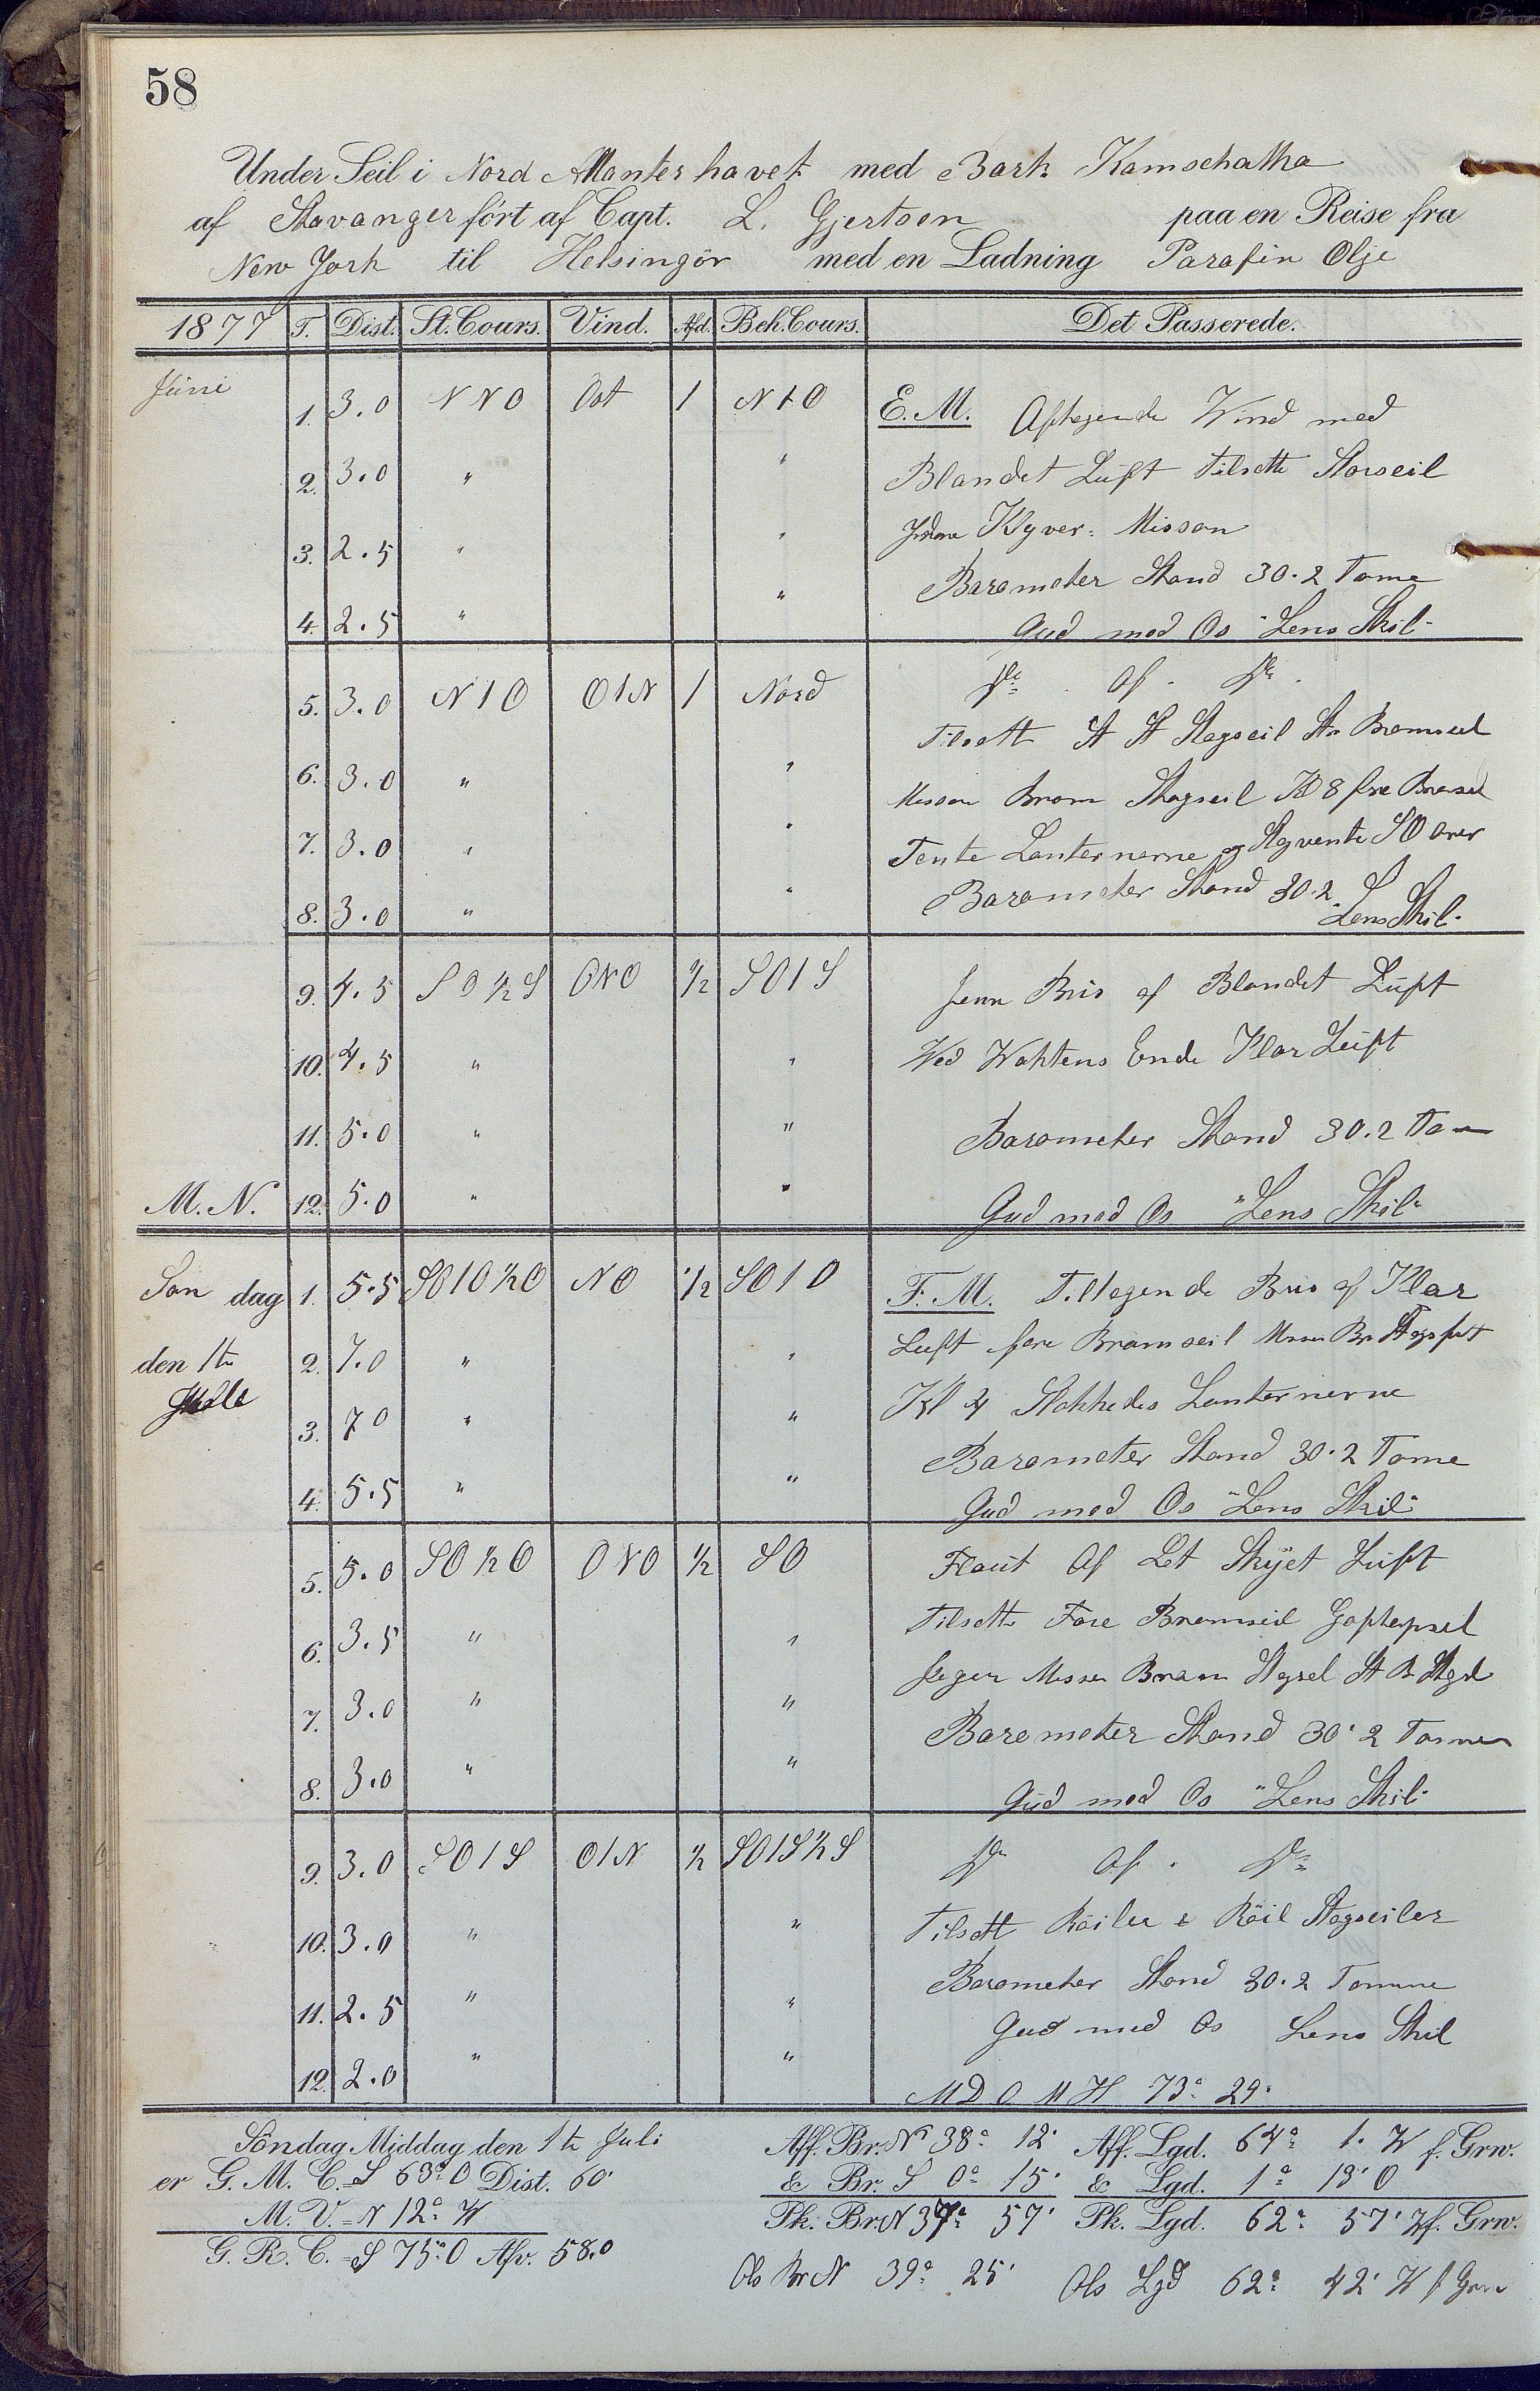 58
Under Seil i Nord Atlanterhavet med Bark Kamschatka
af Stavanger ført af Capt. L. Gjertsen paa en Reise fra
New York til Helsingör med en Ladning Parafin Olje
1877 T. Dist. St. Cours. Vind. Afd. Beh. Cours. Det Passerede.
Juni 1. 3.0 NNO Ost 1 N1O E.M. Aftagende Wind med
2. 3.0 " " Blandet Luft Tilsatte Storseil
3. 2.5 " " Klyver Missan
Barometer Stand 30.2 Tome
4. 2.5 " " Gud med Os "Lens Skil"
5. 3.0 N1O O1N 1 Nord Do Af Do
Tilsatt St St Stagseil St Bramseil
6. 3.0 " " Missan Bram Stagseil Kl 8 fire Bramseil
7. 3.0 " " Tente Lanternerne og Stagvente SO over
Barometer Stand 30.2
8. 3.0 " " Lens Skil"
9. 4.5 SO½S ONO ½ SO1S Jevn Bris af Blandet Luft
10. 4.5 " " Ved Wahtens Ende Klar Luft
11. 5.0 " " Barometer Stand 30.2
M.N. 12. 5.0 " " Gud med Os "Lens Skil"
Søndag 1. 5.5 SO1O½O NO ½ SO1O F.M. Tiltagende Bris af Klar
den 1te 2. 7.0 " " Luft fore Bramseil
3. 7 0 " " Kl 4 Slokkedes Lanternerne
Barometer Stand 30.2 Tome
4. 5.5 " " Gud med Os "Lens Skil"
5. 5.0 SO½O ONO ½ SO Flaut Af Let Skyet Luft
6. 3.5 " " Tilsatte Fore Bramseil Gaftopseil
Jager Missan Bram
7. 3.0 " " Barometer Stand 30.2 Tomme
8. 3.0 " " Gud med Os "Lens Skil"
9. 3.0 SO1S O1N ½ SO1S½S Do Af Do
10. 3.0 " " Tilsatt Röiler & Röil Stagseiler
Barometer Stand 30.2 Tomme
11. 2.5 " " Gud med Os Lens Skil
12. 2.0 " " M D O M H 73° 29'
Söndag Middag den 1te Juli Aff. Br. N 38° 12' Aff. Lgd. 64° 1' W f. Grw.
er G. M. C. = S 63° O Dist. 60' & Br. S 0° 15' & Lgd. 1° 13' O
M. V. = N 12° W Pk. Br. N 37° 57' Pk. Lgd. 62° 57' W f. Grw.
G. R. C. = S 75° O Afv. 58.0
Obs Br N 39° 25' Obs Lgd 62° 42' W f Grw